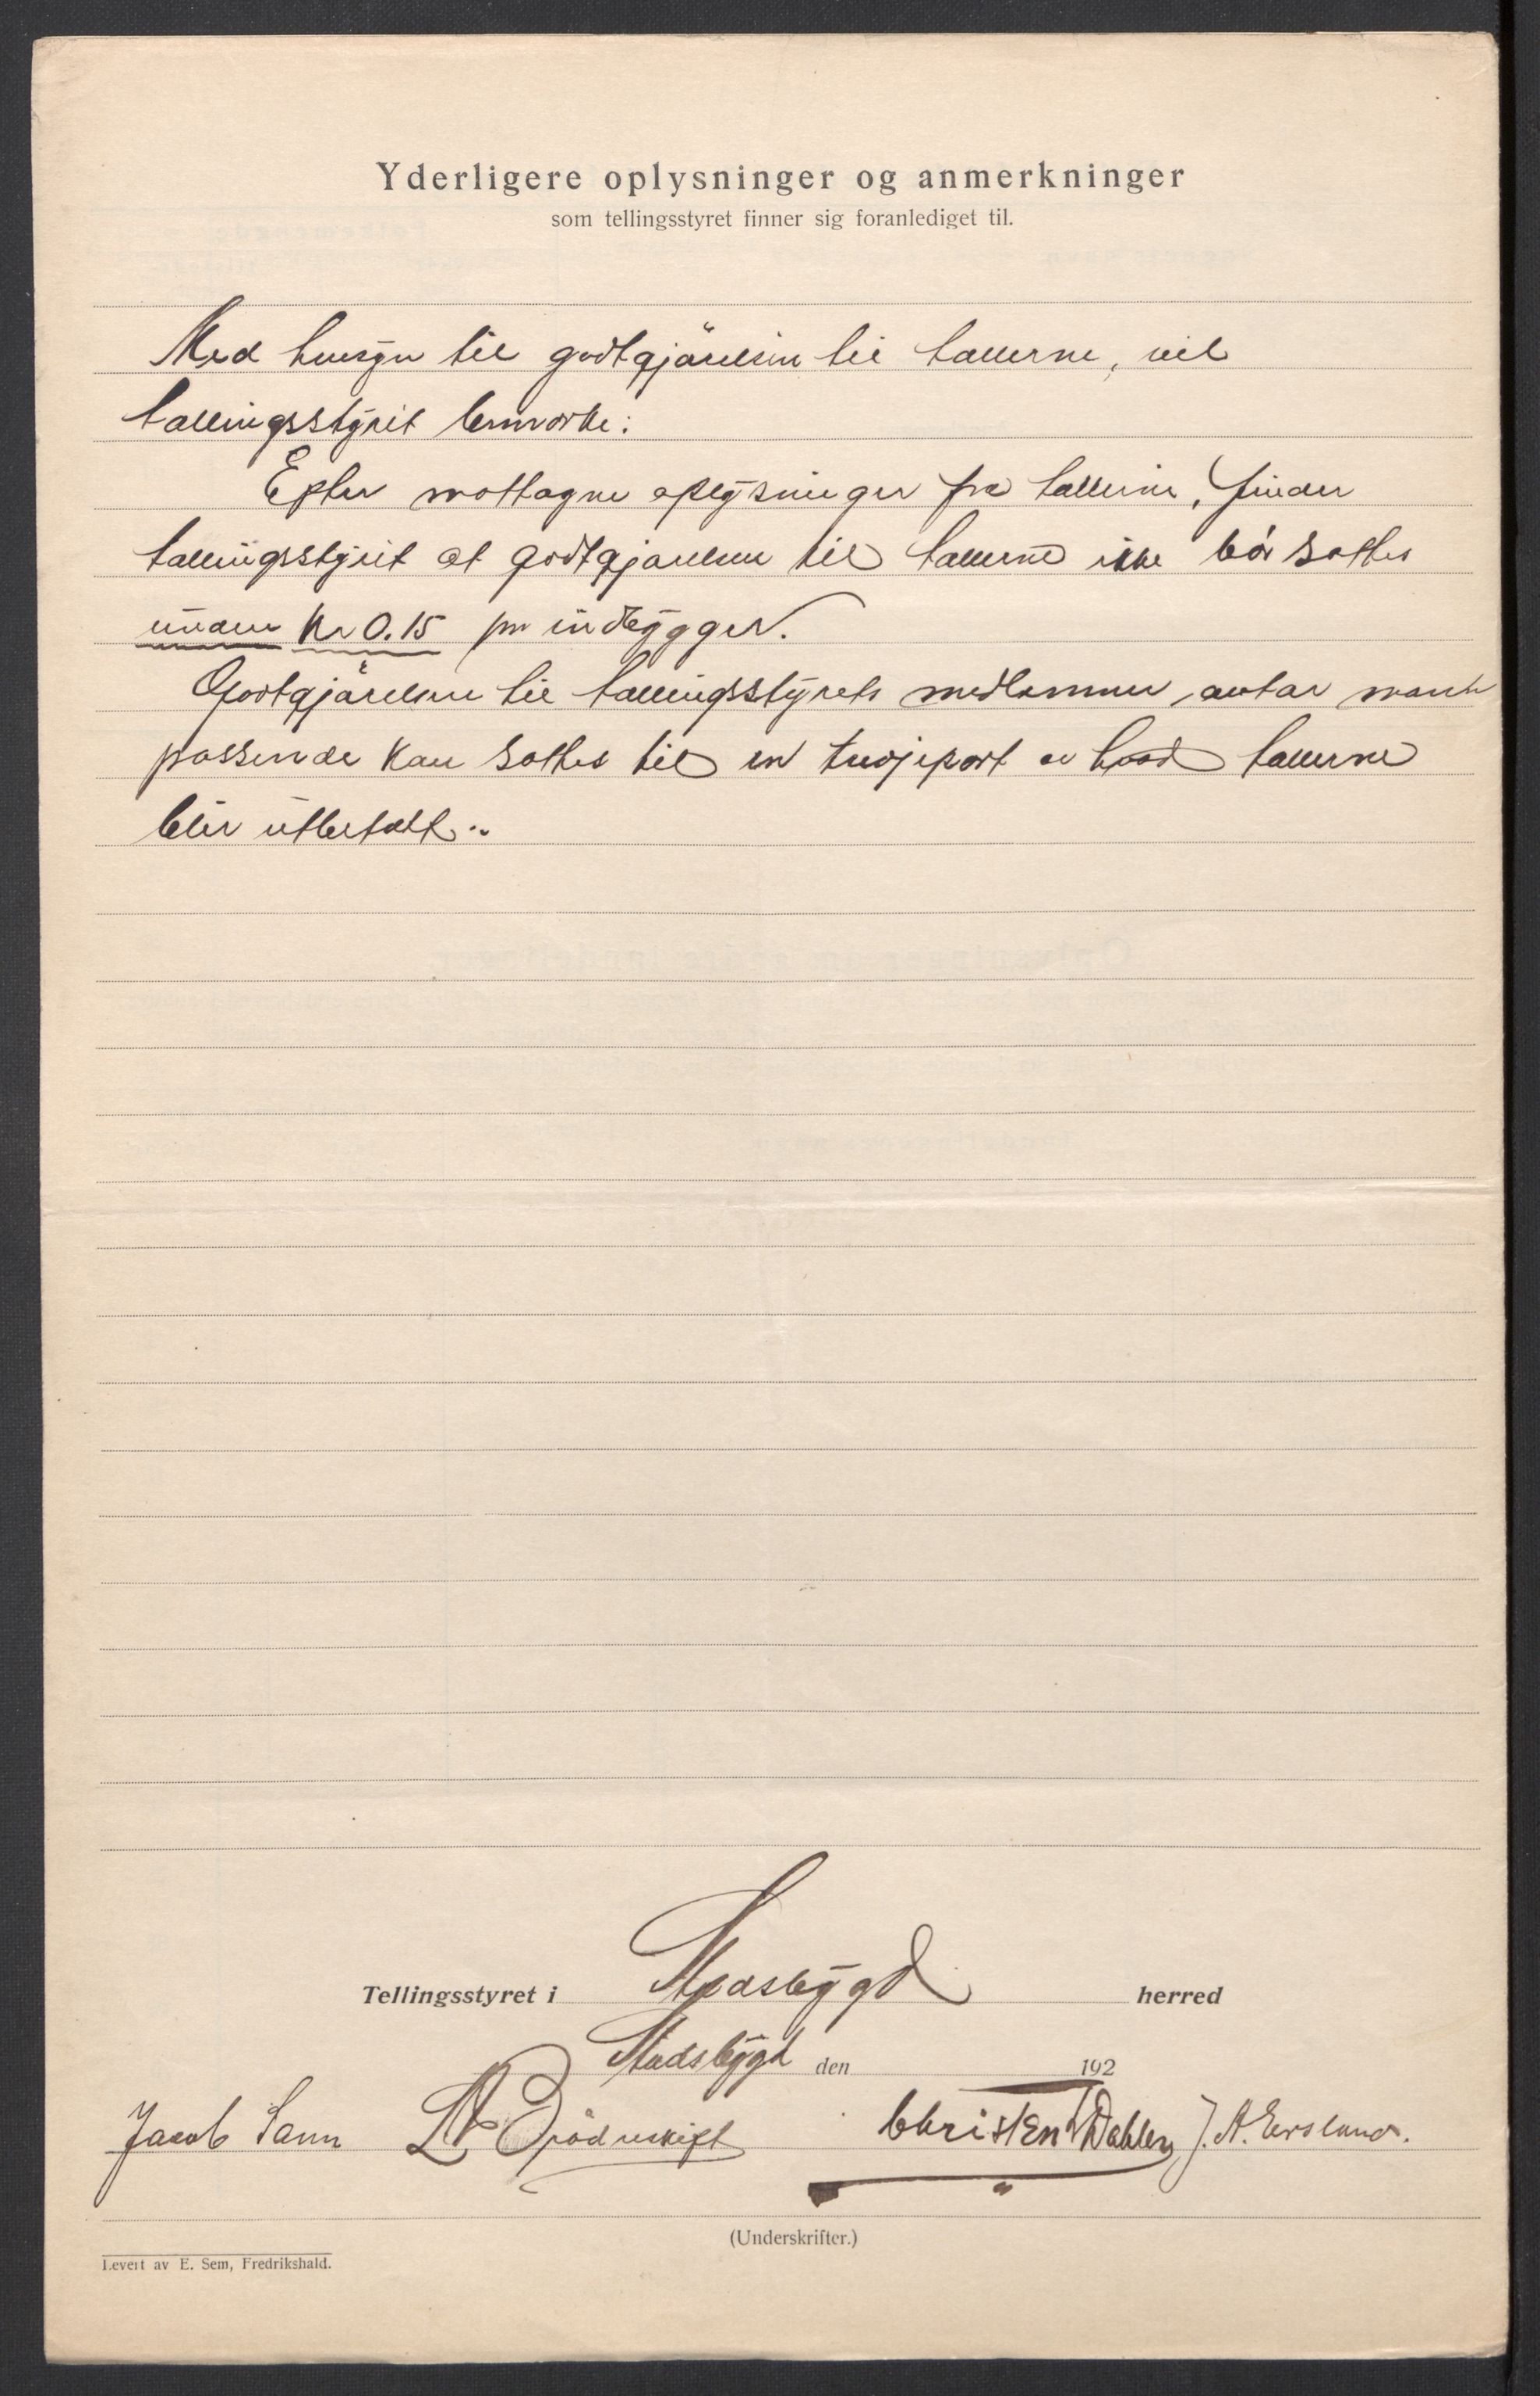 Yderligere oplysninger og anmerkninger
som tellingsstyret finner sig foranlediget til.
Med hensyn til godtgjørelsen til tællerne, vil
tællingsstyret bemærke:
Efter mottagne oplysninger fra tællerne, finder
tællingsstyret at godtgjørelsen til tællerne ikke bør sættes
under Kr 0.15 pr indbygger.
Godtgjørelsen til tællingsstyrets medlemmer antar man
passende kan sættes til en tredjepart av hvad tællerne
blir utbetalt.
Tellingsstyret i Stadsbygd herred
Stadsbygd den 192
Jacob Sann Christen Dahlen J. A.
(Underskrifter.)
Levert av E. Sem, Fredrikshald.